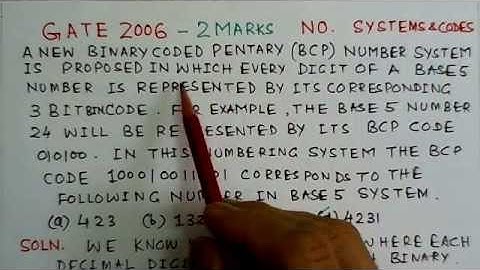 GATE 2006 - 2 MARKS NO. SYSTEMS & CODES
A NEW BINARY CODED PENTARY (BCP) NUMBER SYSTEM
IS PROPOSED IN WHICH EVERY DIGIT OF A BASE 5
NUMBER IS REPRESENTED BY ITS CORRESPONDING
3 BIT BIN CODE. FOR EXAMPLE, THE BASE 5 NUMBER
24 WILL BE REPRESENTED BY ITS BCP CODE
010100. IN THIS NUMBERING SYSTEM THE BCP
CODE 100010011 01 CORRESPONDS TO THE
FOLLOWING NUMBER IN BASE 5 SYSTEM.
(a) 423 (b) 132 4231
SOLN. WE KNOW WHERE EACH
DECIMAL DIGIT IN BINARY.